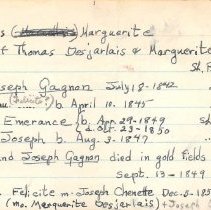 s ( ) Marguerite
f Thomas Desjarlais & Marguerite
St. F
oseph Gagnon July 18-1842
(Felicite?) b. April 10. 1845
Emerance b. Apr. 29-1849
d. Oct. 23-1850
Joseph b. Aug. 3-1847
nd Joseph Gagnon died in gold fields
Sept. 13-1849
Felicite m. Joseph Chenette Dec. 8-185
(mo. Marguerite Desjarlais) + Joseph